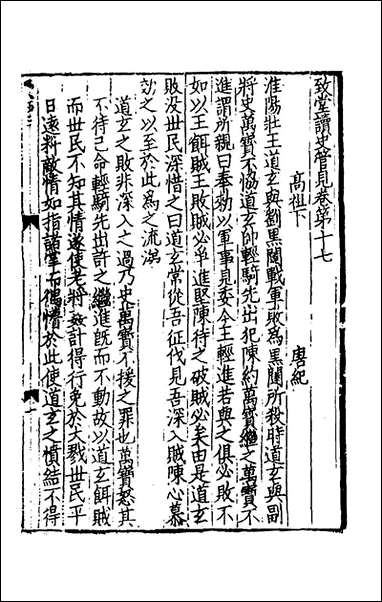 致堂讀史管見卷第十七
高祖下　唐紀
淮陽壯王道玄與劉黑闥戰軍敗為黑闥所殺時道玄與副
將史萬寶不協道玄帥輕騎先出犯陳約萬寶繼之萬寶不
進謂所親曰奉勑以軍事見委令王輕進若與之俱必敗不
如以王餌賊王敗賊必爭進堅陳待之破賊必矣由是道玄
敗没丗民深惜之曰道玄常從吾征伐見吾深入賊陳心慕
效之以至於此為之流涕
道玄之敗非深入之過乃史萬寶不援之罪也萬寶怒其
不待己命輕騎先出許之繼進旣而不動故以道玄餌賊
而丗民不知其情遂使老將姦計得行免於大戮丗民平
日逺料敵情如指諸掌而獨懵於此使道玄之憤結不得